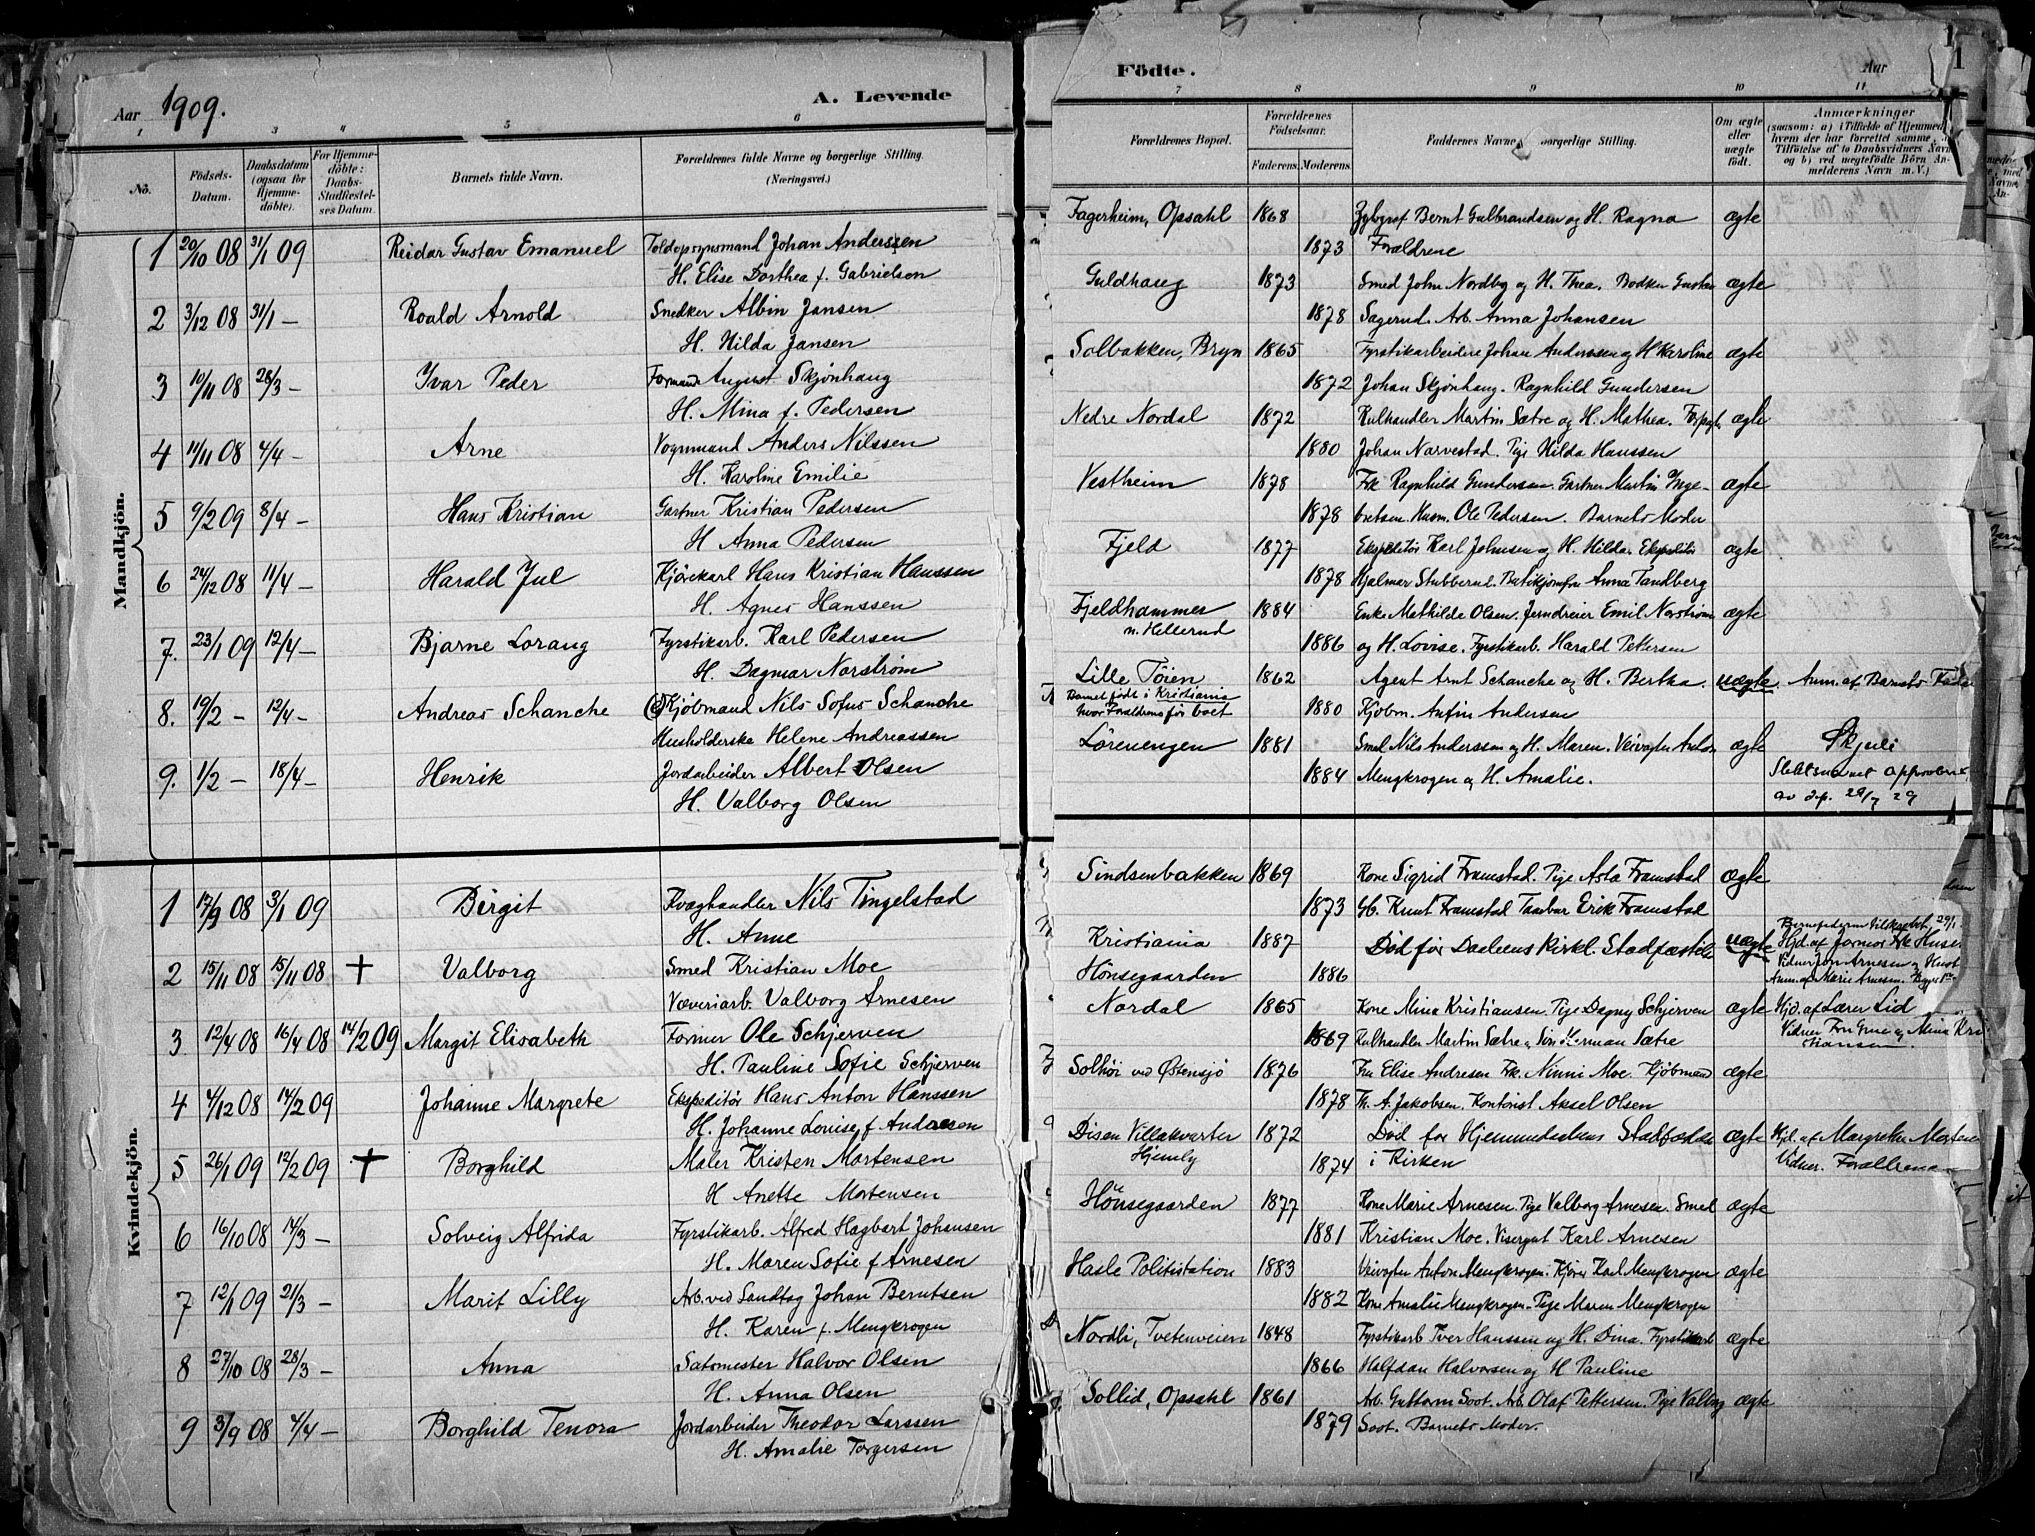 Aar 1909. A. Levende
1 3 4 5 6
Nö. Födsels-Datum. Daabsdatum (ogsaa for Hjemmedöbte). For Hjemmedöbte: Daabs-Stadfæstelses Datum. Barnets fulde Navn. Forældrenes fulde Navne og borgerlige Stilling. (Næringsvei.)
Mandkjön.
1 20/10 08 31/1 09 Reidar Gustav Emanuel Toldopsynsmand Johan Anderssen
H. Elise Dorthea f. Gabrielsen
2 3/12 08 31/1 — Roald Arnold Snedker Albin Jansen
H. Hilda Jansen
3 10/11 08 28/3 — Ivar Peder Formand August Skjønhaug
H. Mina f. Pedersen
4 11/11 08 4/4 — Arne Vognmand Anders Nilssen
H. Karoline Emilie
5 9/2 09 8/4 — Hans Kristian Gartner Kristian Pedersen
H Anna Pedersen
6 24/12 08 11/4 — Harald Jul Kjørekarl Hans Kristian Hanssen
H. Agnes Hanssen
7. 23/1 09 12/4 — Bjarne Lorang Fyrstikarb. Karl Pedersen
H. Dagmar Norstrøm
8. 19/2 — 12/4 — Andreas Schanche Kjøbmand Nils Sofus Schanche
Husholderske Helene Andreassen
9. 1/2 — 18/4 — Henrik Jordarbeider Albert Olsen
H. Valborg Olsen
Kvindekjön.
1 17/9 08 3/1 09 Birgit Kvæghandler Nils Tingelstad
H. Anne
2 15/11 08 15/11 08 + Valborg Smed Kristian Moe
Væveriarb. Valborg Arnesen
3 12/4 08 16/4 08 14/2 09 Margit Elisabeth Former Ole Schjerven
H. Pauline Sofie Schjerven
4 4/12 08 14/2 09 Johanne Margrete Ekspeditør Hans Anton Hanssen
H. Johanne Louise f Andresen
5 26/1 09 12/2 09 + Borghild Maler Kristen Mortensen
H Anette Mortensen
6 16/10 08 14/3 — Solveig Alfrida Fyrstikarb. Alfred Hagbart Johansen
H. Maren Sofie f Arnesen
7 12/1 09 21/3 — Marit Lilly Arb. ved Sandtag Johan Berntsen
H. Karen f. Mengkrogen
8 27/10 08 28/3 — Anna Satsmester Halvor Olsen
H. Anna Olsen
9 3/9 08 4/4 — Borghild Tenora Jordarbeider Theodor Larssen
H. Amalie Torgersen
Födte. Aar 1
7 8 9 10 11
Forældrenes Bopæl. Forældrenes Födselsaar. Faderens. Moderens. Faddernes Navne borgerlige Stilling. Om ægte eller uægte födt. Anmærkninger
(saasom: a) i Tilfælde af Hjemmed
hvem der har forrettet samme,
Tilföielse af to Daabsvidners Navn
og b) ved uægtefödte Börn An-
melderens Navn m. V.)
Fagerheim, Opsahl 1868 Bernt Gulbrandsen og H. Ragna ægte
1873 Forældrene
Guldhaug 1873 Smed John Nordby og H. Thea. Bødker Gustav ægte
1878 Sagerud. Arb. Anna Johansen
Solbakken, Bryn 1865 Fyrstikarbeider Johan Anderssen og H Karoline ægte
1872 Johan Skjønhaug. Ragnhild Gundersen
Nedre Nordal 1872 Kulhandler Martin Sætre og H. Mathea. Forpagter ægte
1880 Johan Narvestad. Pige Hilda Hanssen
Vestheim 1878 Frk Ragnhild Gundersen. Gartner Martin Inge- ægte
1878 bretsen. Husm. Ole Pedersen. Barnets Moder
Fjeld 1877 Ekspeditør Karl Johnsen og H. Hilda. Ekspeditør ægte
1878 Hjalmar Stubberud. Butikjomfru Anna Tandberg
Fjeldhammer 1884 Enke Mathilde Olsen. Jerndreier Emil Norstrøm ægte
n. Hellerud
1886 og H. Lovise. Fyrstikarb. Harald Pettersen
Lille Töien 1862 Agent Arnt Schanche og H. Bertha. uægte. Anm. af Barnets Fader
Barnet født i Kristiania
hvor Forældrene før boet 1880 Kjøbm. Anfin Andersen
Lørenengen 1881 Smed Nils Anderssen og H. Maren. Veivogter Anton ægte Skjuli
1884 Mengkrogen og H. Amalie. Slektsnavnet approbert
av dep. 29/7 29
Sindsenbakken 1869 Kone Sigrid Framstad. Pige Asta Framstad ægte
1873 Gb. Knut Framstad Tambur Erik Framstad
Kristiania 1887 Död før Daabens kirkl. Stadfæstelse uægte Hjd. af Jormor Frk Huse
Hönsegaarden 1886 Anm. af Marie Arnesen
Nordal 1865 Kone Mina Kristiansen. Pige Dagny Schjerven ægte Hjd. af Lærer Lid
1869 Kulhandler Martin Sætre, Søn Herman Sætre Vidner Fru Grue og Mina Kri
stiansen.
Solhöi ved Østensjø 1876 Fru Elise Andresen Frk. Ninni Moe. Kjøbmand ægte
1878 Th. A. Jakobsen. Kontorist Aksel Olsen
Disen Villakvarter 1872 Död før Hjemmedaabens Stadfæstelse ægte Hjd. af Margrethe Mortens
Hjemly 1874 i Kirken Vidner. Forældrene
Hönsegaarden 1877 Kone Marie Arnesen. Pige Valborg Arnesen. Smed ægte
1881 Kristian Moe. Visergut Karl Arnesen
Hasle Politistation 1883 Veivogter Anton Mengkrogen. Kjører Karl Mengkrogen ægte
1882 Kone Amalie Mengkrogen. Pige Maren Mengkrogen
Nordli, Tvetenveien 1848 Fyrstikarb Iver Hanssen og H. Dina. Fyrstikarb ægte
1866 Halfdan Halvorsen og H Pauline
Sollid, Opsahl 1861 Arb. Guttorm Soot. Arb. Olaf Pettersen. Pige Valborg ægte
1879 Soot. Barnets Moder.